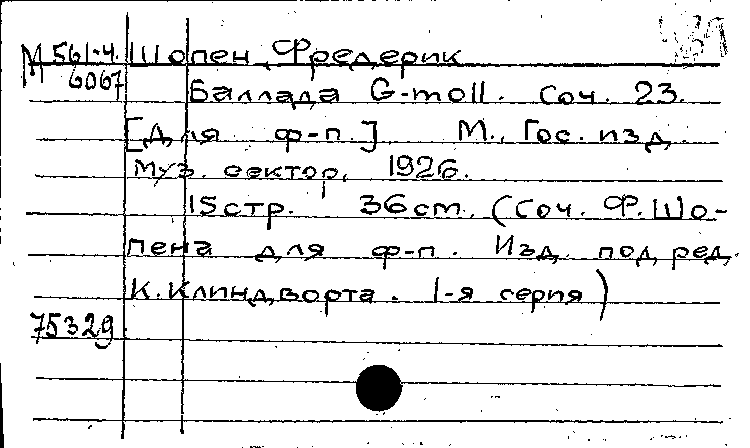 М 561-4 Шопен, Фредерик
6067
Баллада G-moll. Соч. 23.
[Для ф-п.] М., Гос. изд.
Муз. сектор, 1926.
15 стр. 36 cm. (Соч. Ф. Шо-
пена для ф-п. Изд. под ред.
К. Клиндворта. 1-я серия)
75329